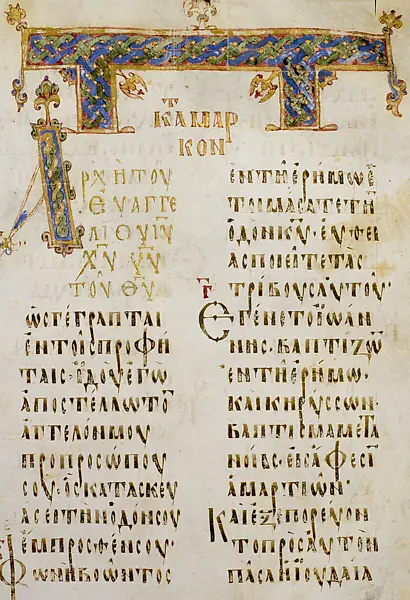 ΤΚΑ ΜΑΡ
ΚΟΝ
ΑΡΧΗ ΤΟΥ
ΕΥΑΓΓΕ
ΛΙΟΥ ΙΥ
ΧΥ ΥΥ
ΤΟΥ ΘΥ
ΩΣ ΓΕΓΡΑΠΤΑΙ
ΕΝ ΤΟΙΣ ΠΡΟΦΗ
ΤΑΙΣ· ΙΔΟΥ ΕΓΩ
ΑΠΟΣΤΕΛΛΩ ΤΟ
ΑΓΓΕΛΟΝ ΜΟΥ
ΠΡΟ ΠΡΟΣΩΠΟΥ
ΣΟΥ· ΟΣ ΚΑΤΑΣΚΕΥ
ΑΣΕΙ ΤΗΝ ΟΔΟΝ ΣΟΥ
ΕΜΠΡΟΣΘΕΝ ΣΟΥ·
ΦΩΝΗ ΒΟΩΝΤΟΣ
ΕΝ ΤΗ ΕΡΗΜΩ Ε
ΤΟΙΜΑΣΑΤΕ ΤΗ
ΟΔΟΝ ΚΥ· ΕΥΘΕΙ
ΑΣ ΠΟΙΕΙΤΕ ΤΑΣ
ΤΡΙΒΟΥΣ ΑΥΤΟΥ·
ΕΓΕΝΕΤΟ ΙΩΑΝ
ΝΗΣ· ΒΑΠΤΙΖΩ
ΕΝ ΤΗ ΕΡΗΜΩ·
ΚΑΙ ΚΗΡΥΣΣΩΝ·
ΒΑΠΤΙΣΜΑ ΜΕΤΑ
ΝΟΙΑΣ· ΕΙΣ ΑΦΕΣΙ
ΑΜΑΡΤΙΩΝ·
ΚΑΙ ΕΞΕΠΟΡΕΥΟΝ
ΤΟ ΠΡΟΣ ΑΥΤΟΝ
ΠΑΣΑ Η ΙΟΥΔΑΙΑ